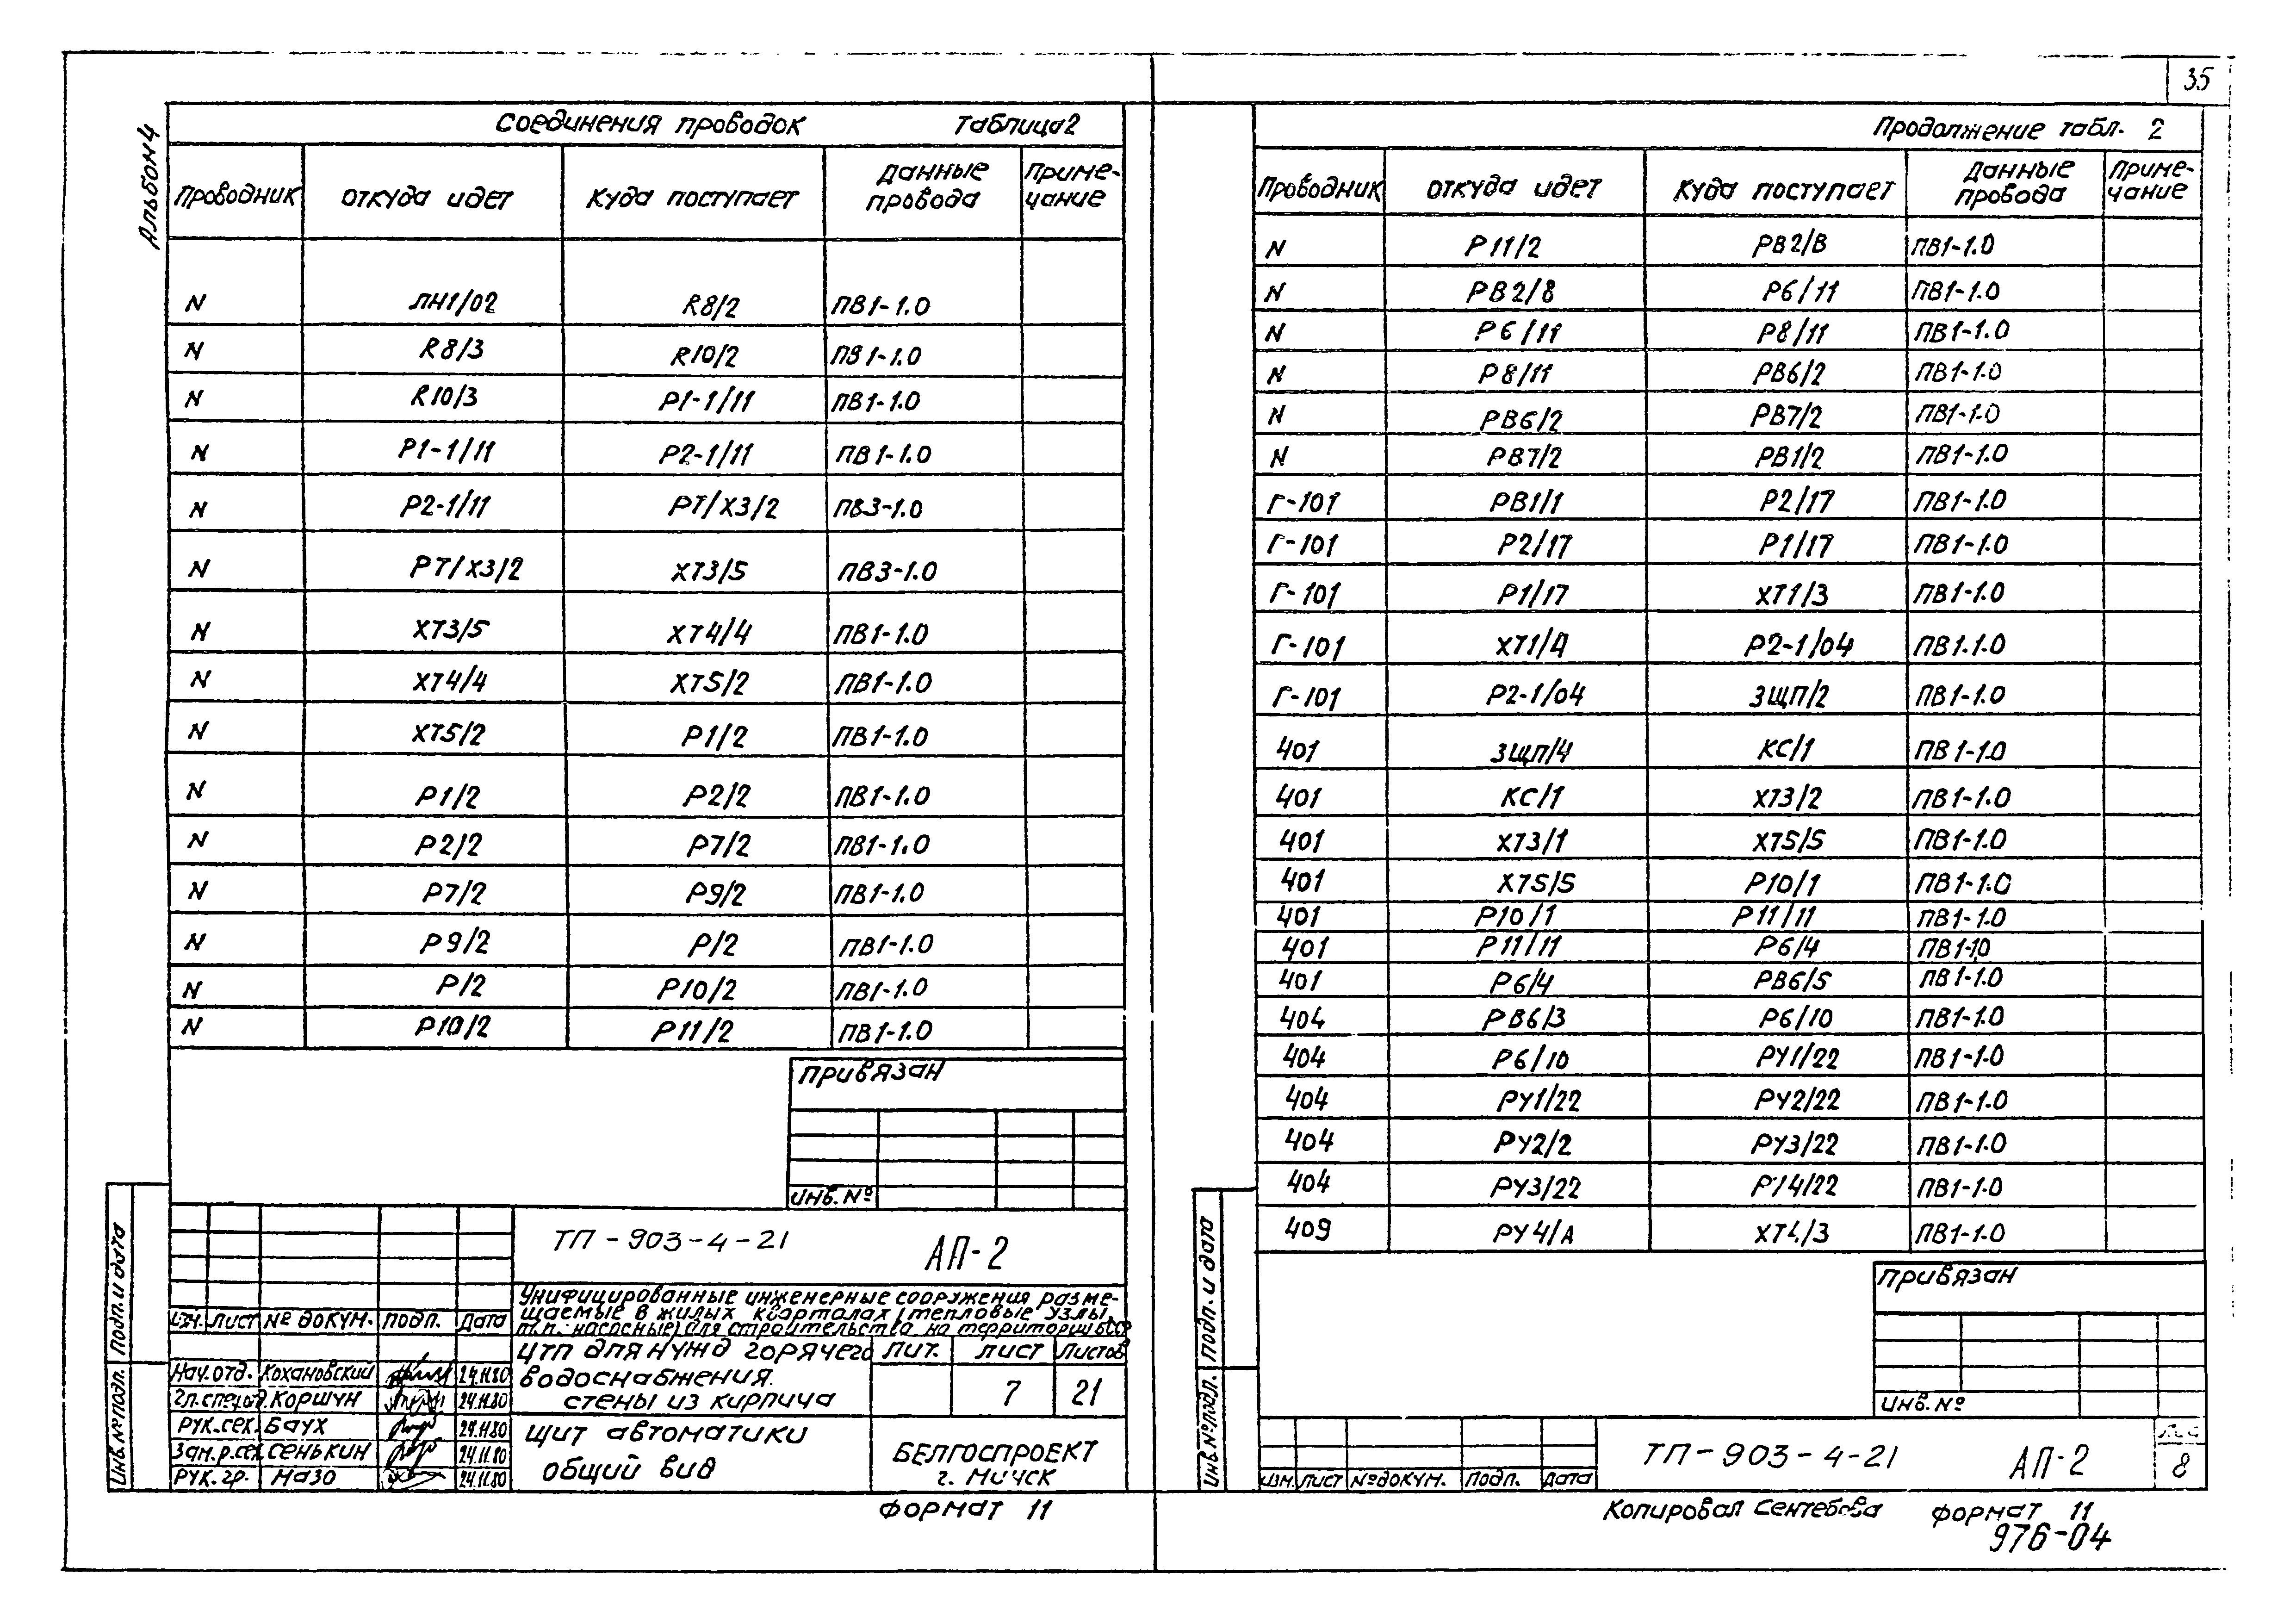 35
Альбом 4
Соединения проводок Таблица 2
Проводник откуда идет Куда поступает Данные провода Примечание
N ЛН1/02 R8/2 ПВ1-1.0
N R8/3 R10/2 ПВ1-1.0
N R10/3 Р1-1/11 ПВ1-1.0
N Р1-1/11 Р2-1/11 ПВ1-1.0
N Р2-1/11 РТ/Х3/2 ПВ3-1.0
N РТ/Х3/2 ХТ3/5 ПВ3-1.0
N ХТ3/5 ХТ4/4 ПВ1-1.0
N ХТ4/4 ХТ5/2 ПВ1-1.0
N ХТ5/2 Р1/2 ПВ1-1.0
N Р1/2 Р2/2 ПВ1-1.0
N Р2/2 Р7/2 ПВ1-1.0
N Р7/2 Р9/2 ПВ1-1.0
N Р9/2 Р/2 ПВ1-1.0
N Р/2 Р10/2 ПВ1-1.0
N Р10/2 Р11/2 ПВ1-1.0
Привязан
Инв. №
ТП-903-4-21 АП-2
Унифицированные инженерные сооружения разме-
щаемые в жилых кварталах (тепловые узлы,
т.п. насосные) для строительства на территории БССР
Изм. Лист № докум. Подп. Дата
ЦТП для нужд горячего
водоснабжения.
стены из кирпича
Лит. Лист Листов
7 21
Нач. отд. Кохановский 24.11.80
Гл. спец. отд. Коршун 24.11.80
Рук. сек. Баух 24.11.80
Зам. р. сек. Сенькин 24.11.80
Рук. гр. Мазо 24.11.80
Щит автоматики
общий вид
БЕЛГОСПРОЕКТ
г. Минск
Подп. и дата
Инв. № подл.
Формат 11
Продолжение табл. 2
Проводник откуда идет Куда поступает Данные провода Примечание
N Р11/2 РВ2/В ПВ1-1.0
N РВ2/8 Р6/11 ПВ1-1.0
N Р6/11 Р8/11 ПВ1-1.0
N Р8/11 РВ6/2 ПВ1-1.0
N РВ6/2 РВ7/2 ПВ1-1.0
N РВ7/2 РВ1/2 ПВ1-1.0
Г-101 РВ1/1 Р2/17 ПВ1-1.0
Г-101 Р2/17 Р1/17 ПВ1-1.0
Г-101 Р1/17 ХТ1/3 ПВ1-1.0
Г-101 ХТ1/4 Р2-1/04 ПВ1.1.0
Г-101 Р2-1/04 3ЩП/2 ПВ1-1.0
401 3ЩП/4 КС/1 ПВ1-1.0
401 КС/1 ХТ3/2 ПВ1-1.0
401 ХТ3/1 ХТ5/5 ПВ1-1.0
401 ХТ5/5 Р10/1 ПВ1-1.0
401 Р10/1 Р11/11 ПВ1-1.0
401 Р11/11 Р6/4 ПВ1-10
401 Р6/4 РВ6/5 ПВ1-1.0
404 РВ6/3 Р6/10 ПВ1-1.0
404 Р6/10 РУ1/22 ПВ1-1.0
404 РУ1/22 РУ2/22 ПВ1-1.0
404 РУ2/2 РУ3/22 ПВ1-1.0
404 РУ3/22 РУ4/22 ПВ1-1.0
409 РУ4/А ХТ4/3 ПВ1-1.0
Привязан
Инв. №
Подп. и дата
Инв. № подл.
Изм. Лист № докум. Подп. Дата
ТП-903-4-21 АП-2
8
Копировал Сентебова Формат 11
976-04